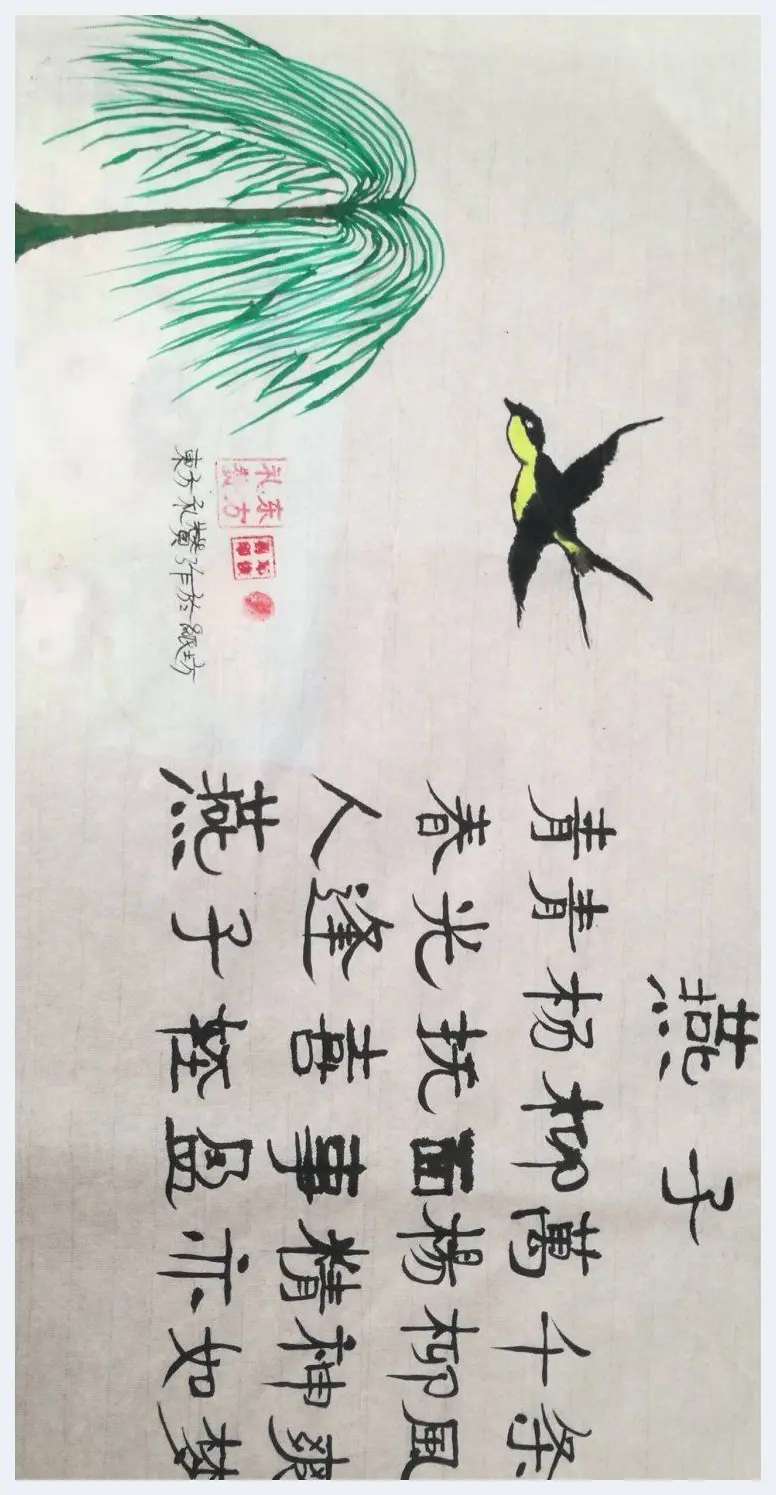 燕子
青青杨柳萬千条
春光抚面楊柳風
人逢喜事精神爽
燕子轻盈亦如梦
東方礼贊作於紙坊
东方礼赞